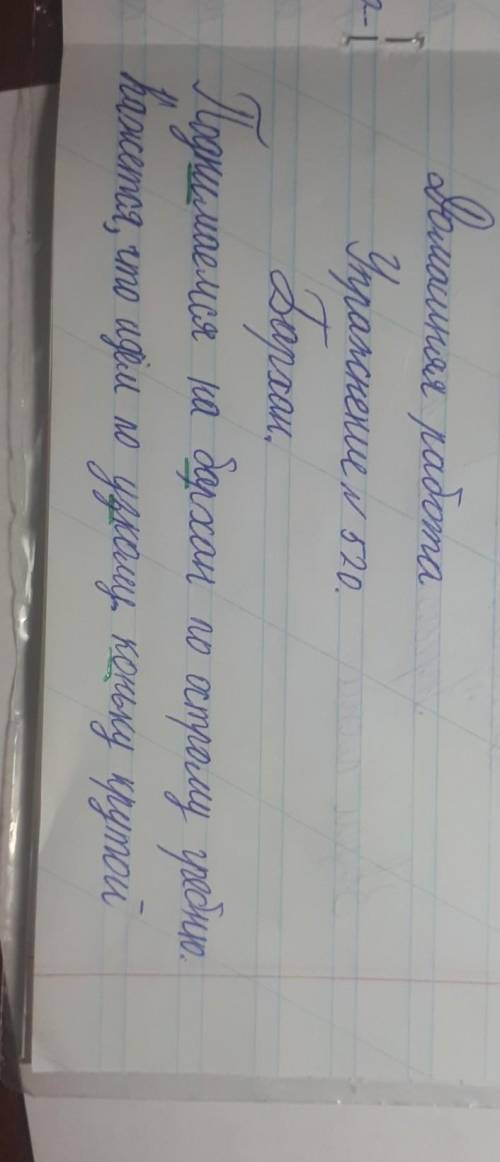 Домашняя работа
Упражнение N 520.
Бархан.
Поднимаемся на бархан по острому гребню.
Кажется, что идём по узкому коньку крутой